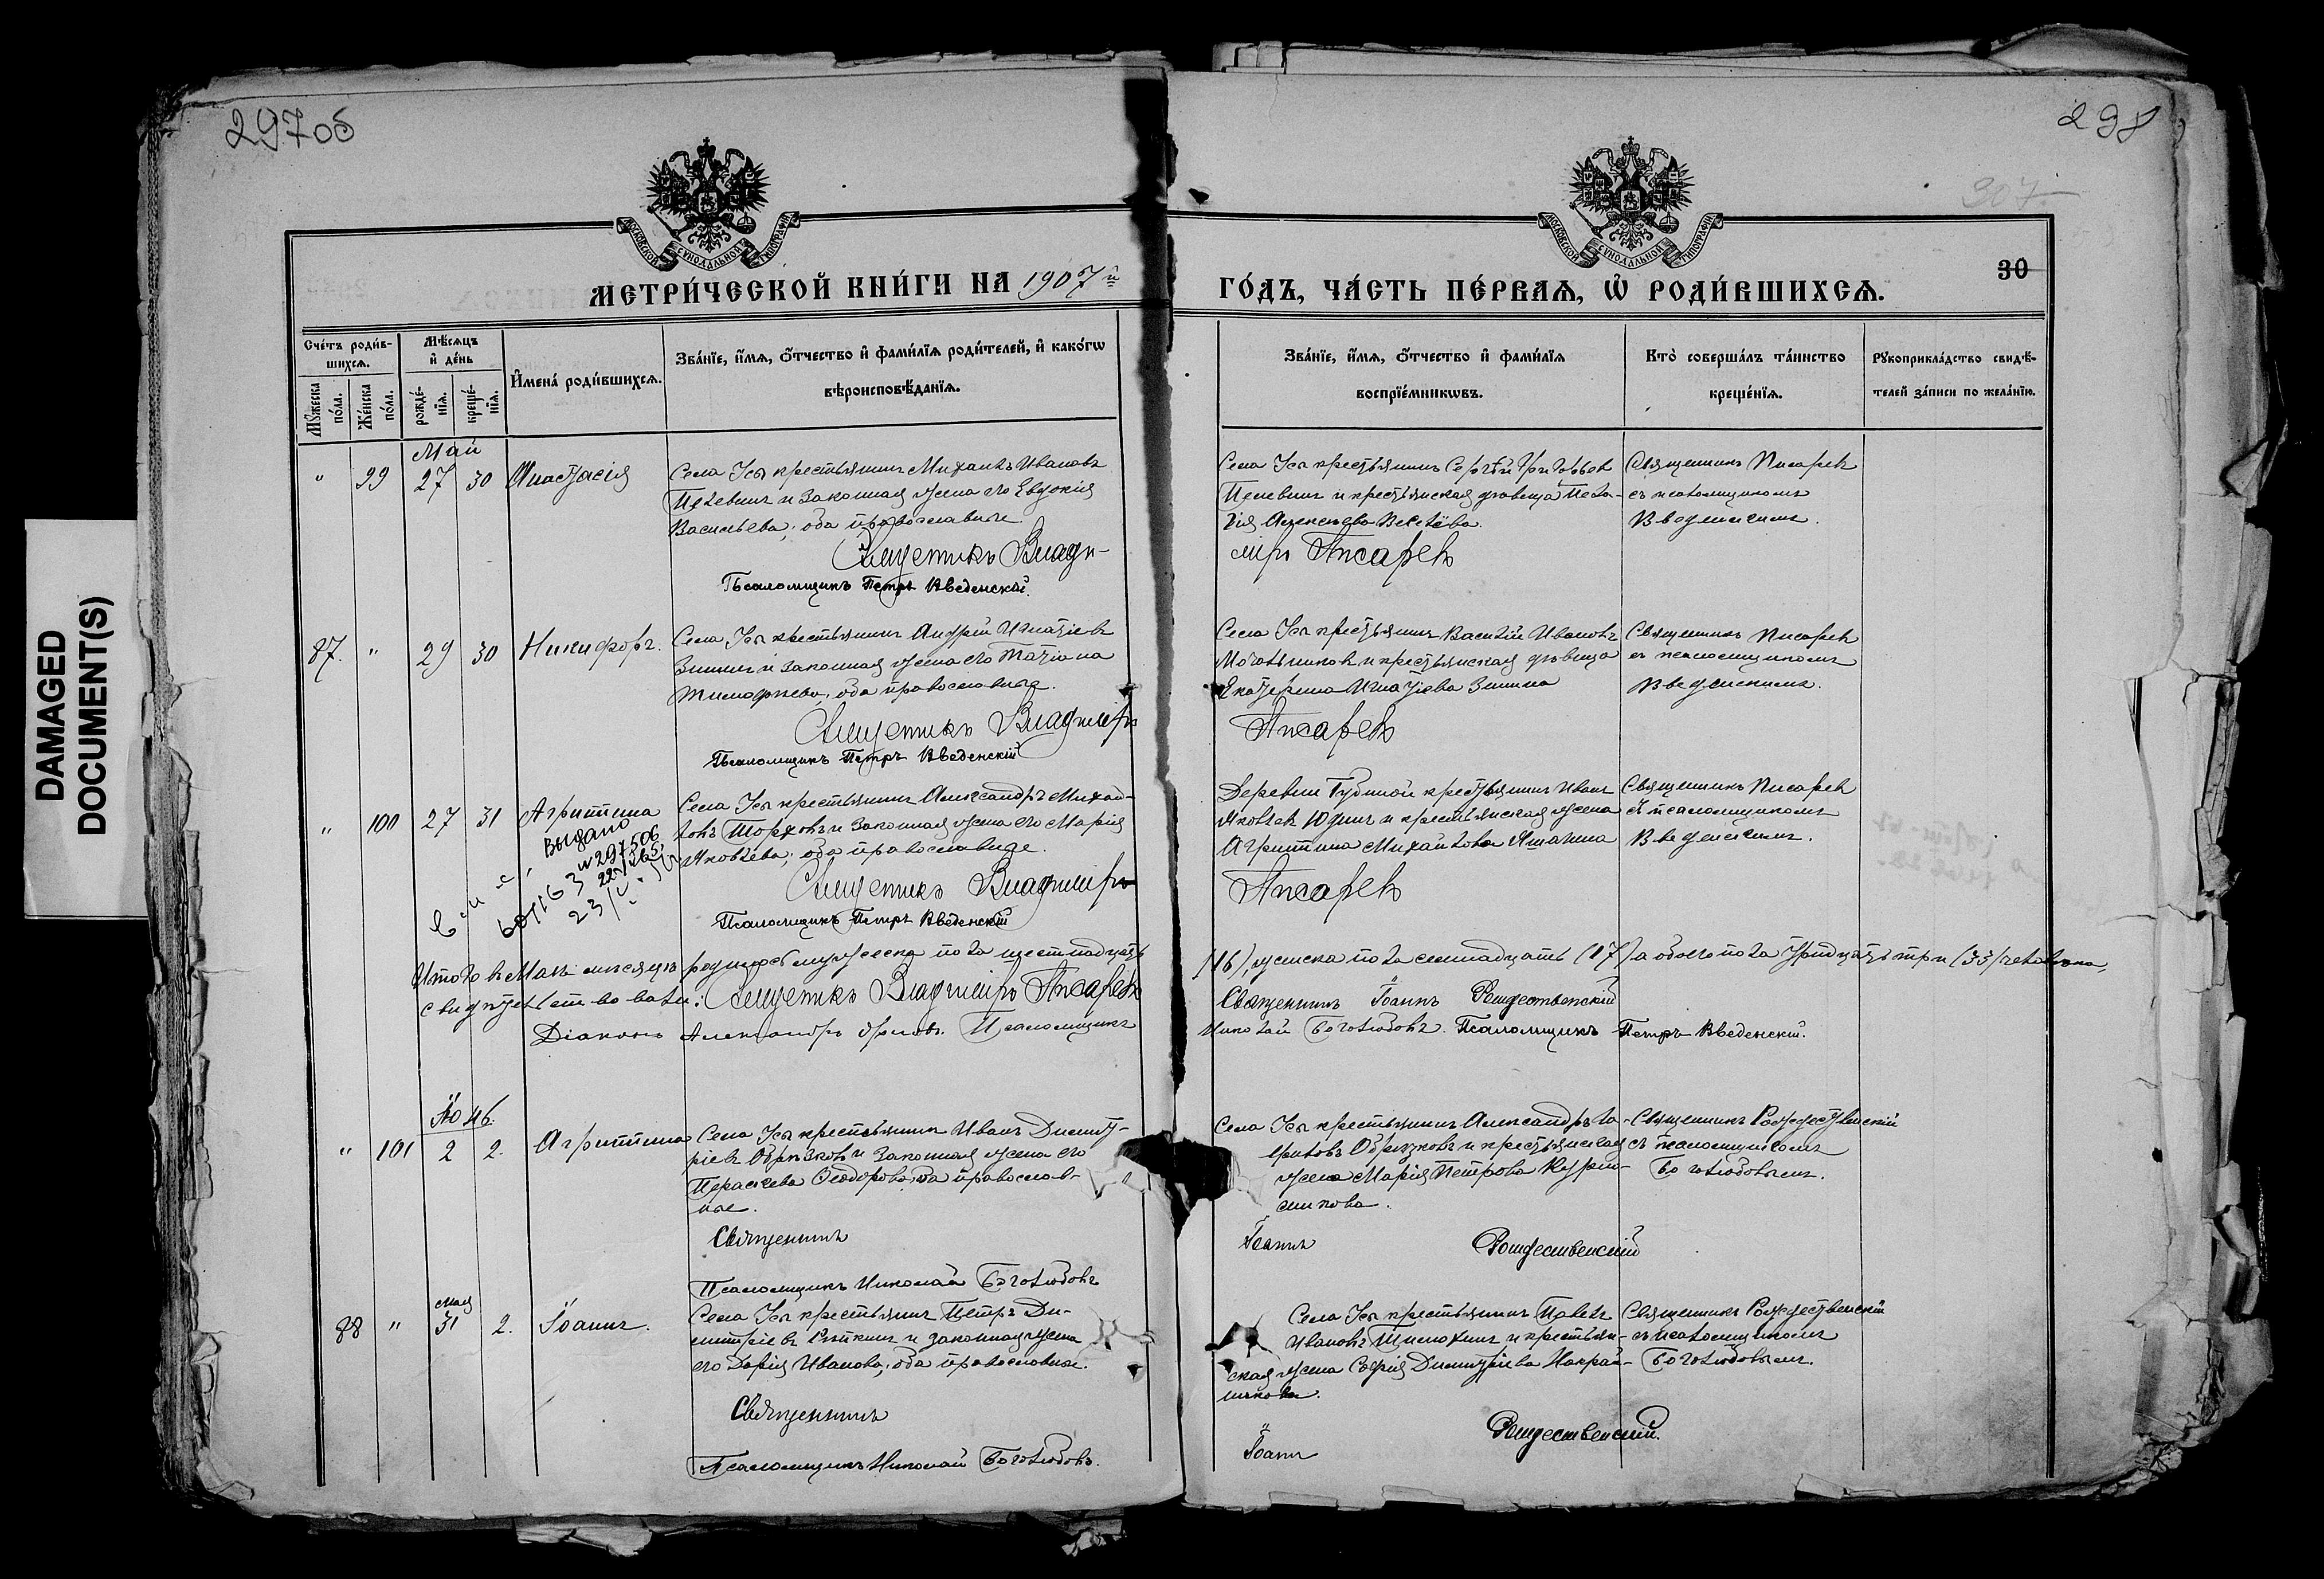 297об
298
307
DAMAGED
DOCUMENT(S)
МОСКОВСКОЙ СѴНОДАЛЬНОЙ ТИПОГРАФІИ
МОСКОВСКОЙ СѴНОДАЛЬНОЙ ТИПОГРАФІИ
МЕТРИ́ЧЕСКОЙ КНИ́ГИ НА 1907 й
ГО́ДЪ, ЧА́СТЬ ПЕ́РВАѦ, Ѡ҆ РОДИ́ВШИХСѦ.
30
Сче́тъ роди́в-
шихсѧ.
Мꙋжеска
по́ла.
Же́нска
по́ла.
Мѣ́сѧцъ
и҆ де́нь
рожде́-
нїѧ.
креще́-
нїѧ.
И҆мена́ роди́вшихсѧ.
Зва́нїе, и҆́мѧ, ѻ҆́тчество и҆ фами́лїѧ роди́телей, и҆ како́гѡ
вѣроисповѣ́данїѧ.
Зва́нїе, и҆́мѧ, ѻ҆́тчество и҆ фами́лїѧ
воспрїе́мникѡвъ.
Кто̀ соверша́лъ та́инство
креще́нїѧ.
Рꙋкоприкла́дство свидѣ́-
телей за́писи по жела́нїю.
Май
" 99 27 30 Анастасія
Села Усы крестьянинъ Михаилъ Ивановъ
Пелевинъ и законная жена его Евдокія
Васильева; оба православные.
Священникъ Влади-
Псаломщикъ Петръ Введенскій.
Села Усы крестьянинъ Сергѣй Григорьевъ
Пелевинъ и крестьянская дѣвица Пела-
гія Алексѣева
міръ Писаревъ
Священникъ Писаревъ
съ псаломщикомъ
Введенскимъ.
87. " 29 30 Никифоръ.
Села Усы крестьянинъ Андрей Игнатіевъ
Зининъ и законная жена его Татіана
Тимофеева; оба православные.
Священникъ Владиміръ
Псаломщикъ Петръ Введенскій
Села Усы крестьянинъ Василій Ивановъ
и крестьянская дѣвица
Екатерина Игнатіева Зинина
Писаревъ
Священникъ Писаревъ
съ псаломщикомъ
Введенскимъ.
" 100 27 31 Агриппина
выдано
23/IV
Села Усы крестьянинъ Александръ Михай-
ловъ Торховъ и законная жена его Марія
Яковлева; оба православные.
Священникъ Владиміръ
Псаломщикъ Петръ Введенскій
Деревни Губиной крестьянинъ Иванъ
Яковлевъ Юдинъ и крестьянская жена
Агриппина Михайлова
Писаревъ
Священникъ Писаревъ
съ псаломщикомъ
Введенскимъ.
Итого въ Маѣ мѣсяцѣ родилось мужеска пола шестнадцать
(16), женска пола семнадцать (17) а обоего пола тридцать три (33) человѣка,
свидѣтельствовали: Священникъ Владиміръ Писаревъ
Священникъ Іоаннъ Рождественскій
Діаконъ Александръ Орловъ. Псаломщикъ
Николай Боголюбовъ. Псаломщикъ Петръ Введенскій.
Іюнь.
" 101 2 2. Агриппина
Села Усы крестьянинъ Иванъ Димит-
ріевъ Обрѣзковъ и законная жена его
Параскева Ѳеодорова, оба православ-
ные.
Священникъ
Псаломщикъ Николай Боголюбовъ
Села Усы крестьянинъ Александръ Га-
вриловъ Обрѣзковъ и крестьянская
жена Марія Петрова
Іоаннъ Рождественскій
Священникъ Рождественскій
съ псаломщикомъ
Боголюбовымъ.
мая
88 " 31 2. Іоаннъ.
Села Усы крестьянинъ Петръ Ди-
митріевъ Рѣткинъ и законная жена
его Дарія Иванова, оба православные.
Священникъ
Псаломщикъ Николай Боголюбовъ.
Села Усы крестьянинъ Павелъ
Ивановъ Тимохинъ и крестьян-
ская жена Софія Димитріева
Іоаннъ Рождественскій.
Священникъ Рождественскій
съ псаломщикомъ
Боголюбовымъ.